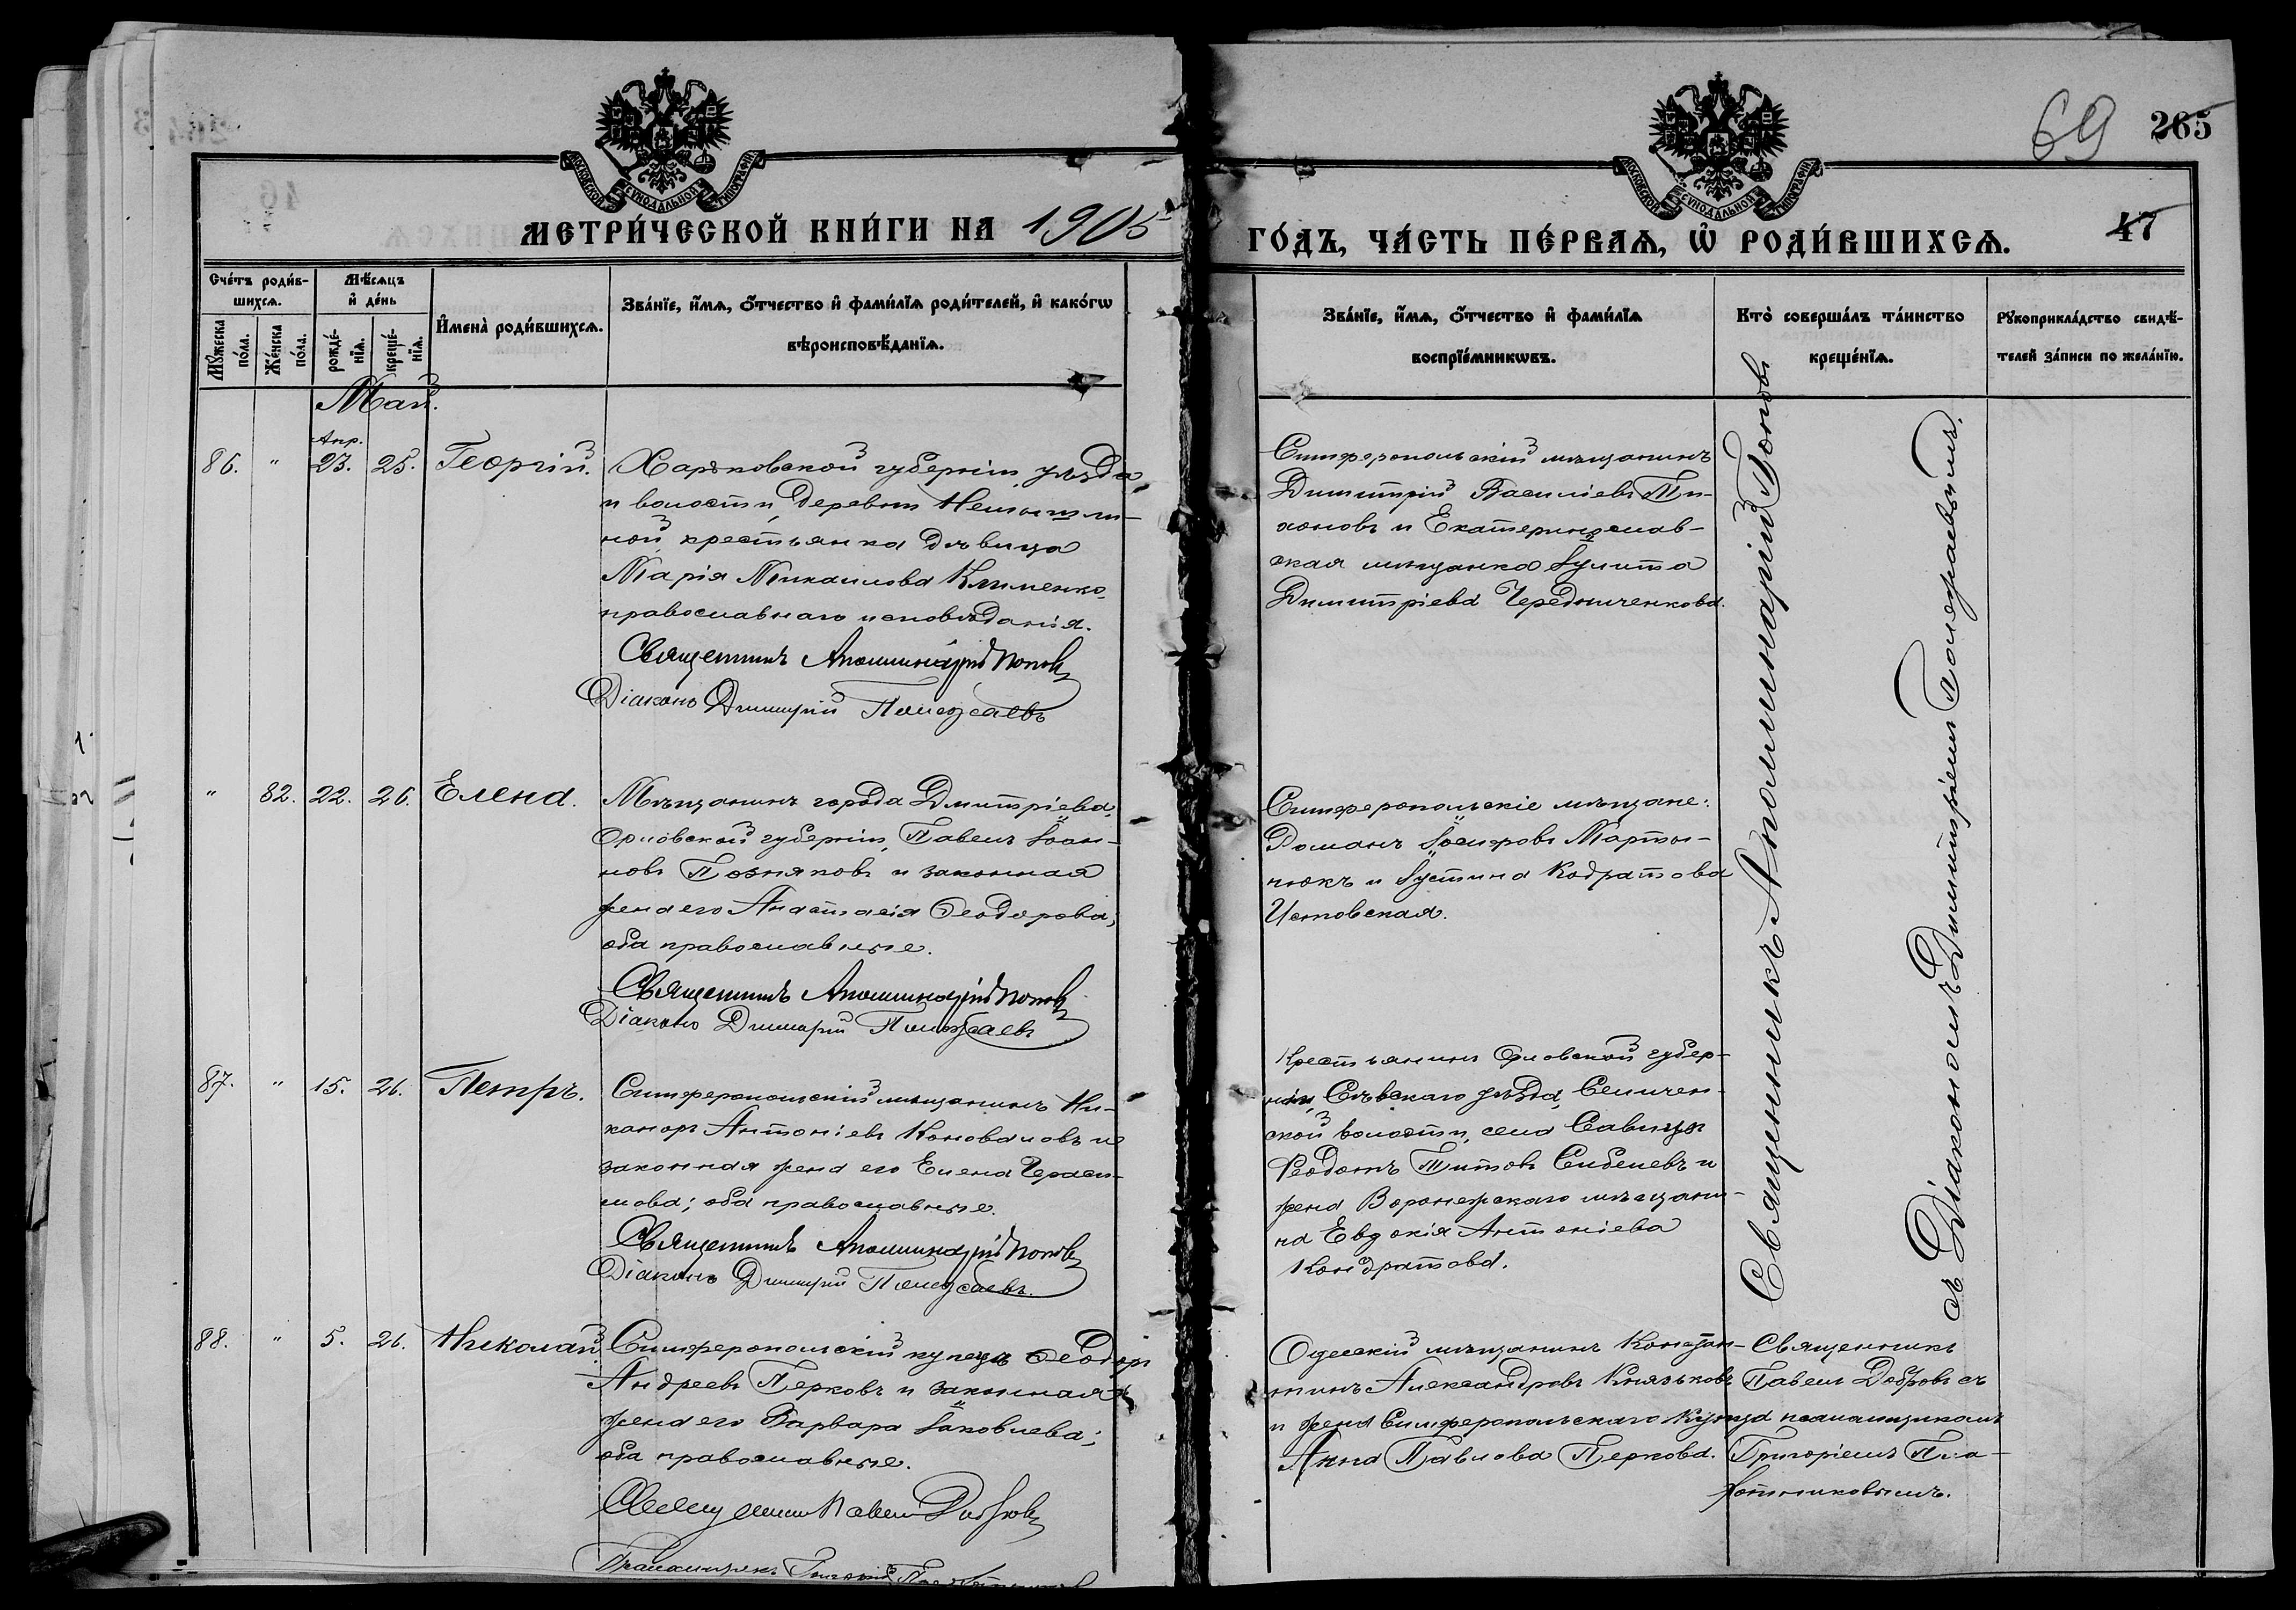 69 265
МОСКОВСКОЙ СѴНОДАЛЬНОЙ ТИПОГРАФІИ
МОСКОВСКОЙ СѴНОДАЛЬНОЙ ТИПОГРАФІИ
47
МЕТРИ́ЧЕСКОЙ КНИ́ГИ НА 1905
ГО́ДЪ, ЧА́СТЬ ПЕ́РВАѦ, Ѡ҆ РОДИ́ВШИХСѦ.
Сче́тъ роди́в-
шихсѧ.
Мꙋ́жеска
по́ла.
Же́нска
по́ла.
Мѣ́сѧцъ
и҆ де́нь
рожде́-
нїѧ.
креще́-
нїѧ.
И҆мена̀ роди́вшихсѧ.
Зва́нїе, и҆́мѧ, ѻ҆́тчество и҆ фами́лїѧ роди́телей, и҆ како́гѡ
вѣроисповѣ́данїѧ.
Зва́нїе, и҆́мѧ, ѻ҆́тчество и҆ фами́лїѧ
воспрїе́мникѡвъ.
Кто̀ соверша́лъ та́инство
креще́нїѧ.
Рꙋкоприкла́дство свидѣ́-
телей за́писи по жела́нїю.
Май.
Апр.
86. " 23. 25. Георгій.
Харьковской губерніи, уѣзда
и волости, деревни Немышлі-
ной, крестьянка дѣвица
Марія Михаилова Клименко,
православнаго исповѣданія.
Священникъ Аполлинарій Поповъ
Діаконъ Димитрій Полежаевъ
Симферопольскій мѣщанинъ
Димитрій Василіевъ Ти-
хоновъ и Екатеринослав-
ская мѣщанка Іулита
Димитріева Чередниченкова.
Священникъ Аполлинарій Поповъ
съ Діакономъ Димитріемъ Полежаевымъ.
" 82. 22. 26. Елена.
Мѣщанинъ города Дмитріева,
Орловской губерніи, Павелъ Іоан-
новъ Позняковъ и законная
жена его Анастасія Ѳеодорова;
оба православные.
Священникъ Аполлинарій Поповъ
Діаконъ Димитрій Полежаевъ
Симферопольскіе мѣщане:
Романъ Іосифовъ Марты-
нюкъ и Іустина Кодратова
Истовская.
87. " 15. 26. Петръ.
Симферопольскій мѣщанинъ Ни-
каноръ Антоніевъ Коноваловъ и
законная жена его Елена Гераси-
мова; оба православные.
Священникъ Аполлинарій Поповъ
Діаконъ Димитрій Полежаевъ.
Крестьянинъ Орловской губер-
ніи, Сѣвскаго уѣзда, Селичен-
ской волости, села Савицы
Ѳеодотъ Титовъ Сибелевъ и
жена Воронежскаго мѣщани-
на Евдокія Антоніева
Кондратова.
88. " 5. 26. Николай.
Симферопольскій купецъ Ѳеодоръ
Андреевъ Перковъ и законная
жена его Варвара Іаковлева;
оба православные.
Священникъ Павелъ Добровъ
Псаломщикъ Григорій
Одесскій мѣщанинъ Констан-
тинъ Александровъ Князьковъ
и жена Симферопольскаго купца
Анна Павлова Перкова.
Священникъ
Павелъ Добровъ съ
псаломщикомъ
Григоріемъ Пло-
хотниковымъ.